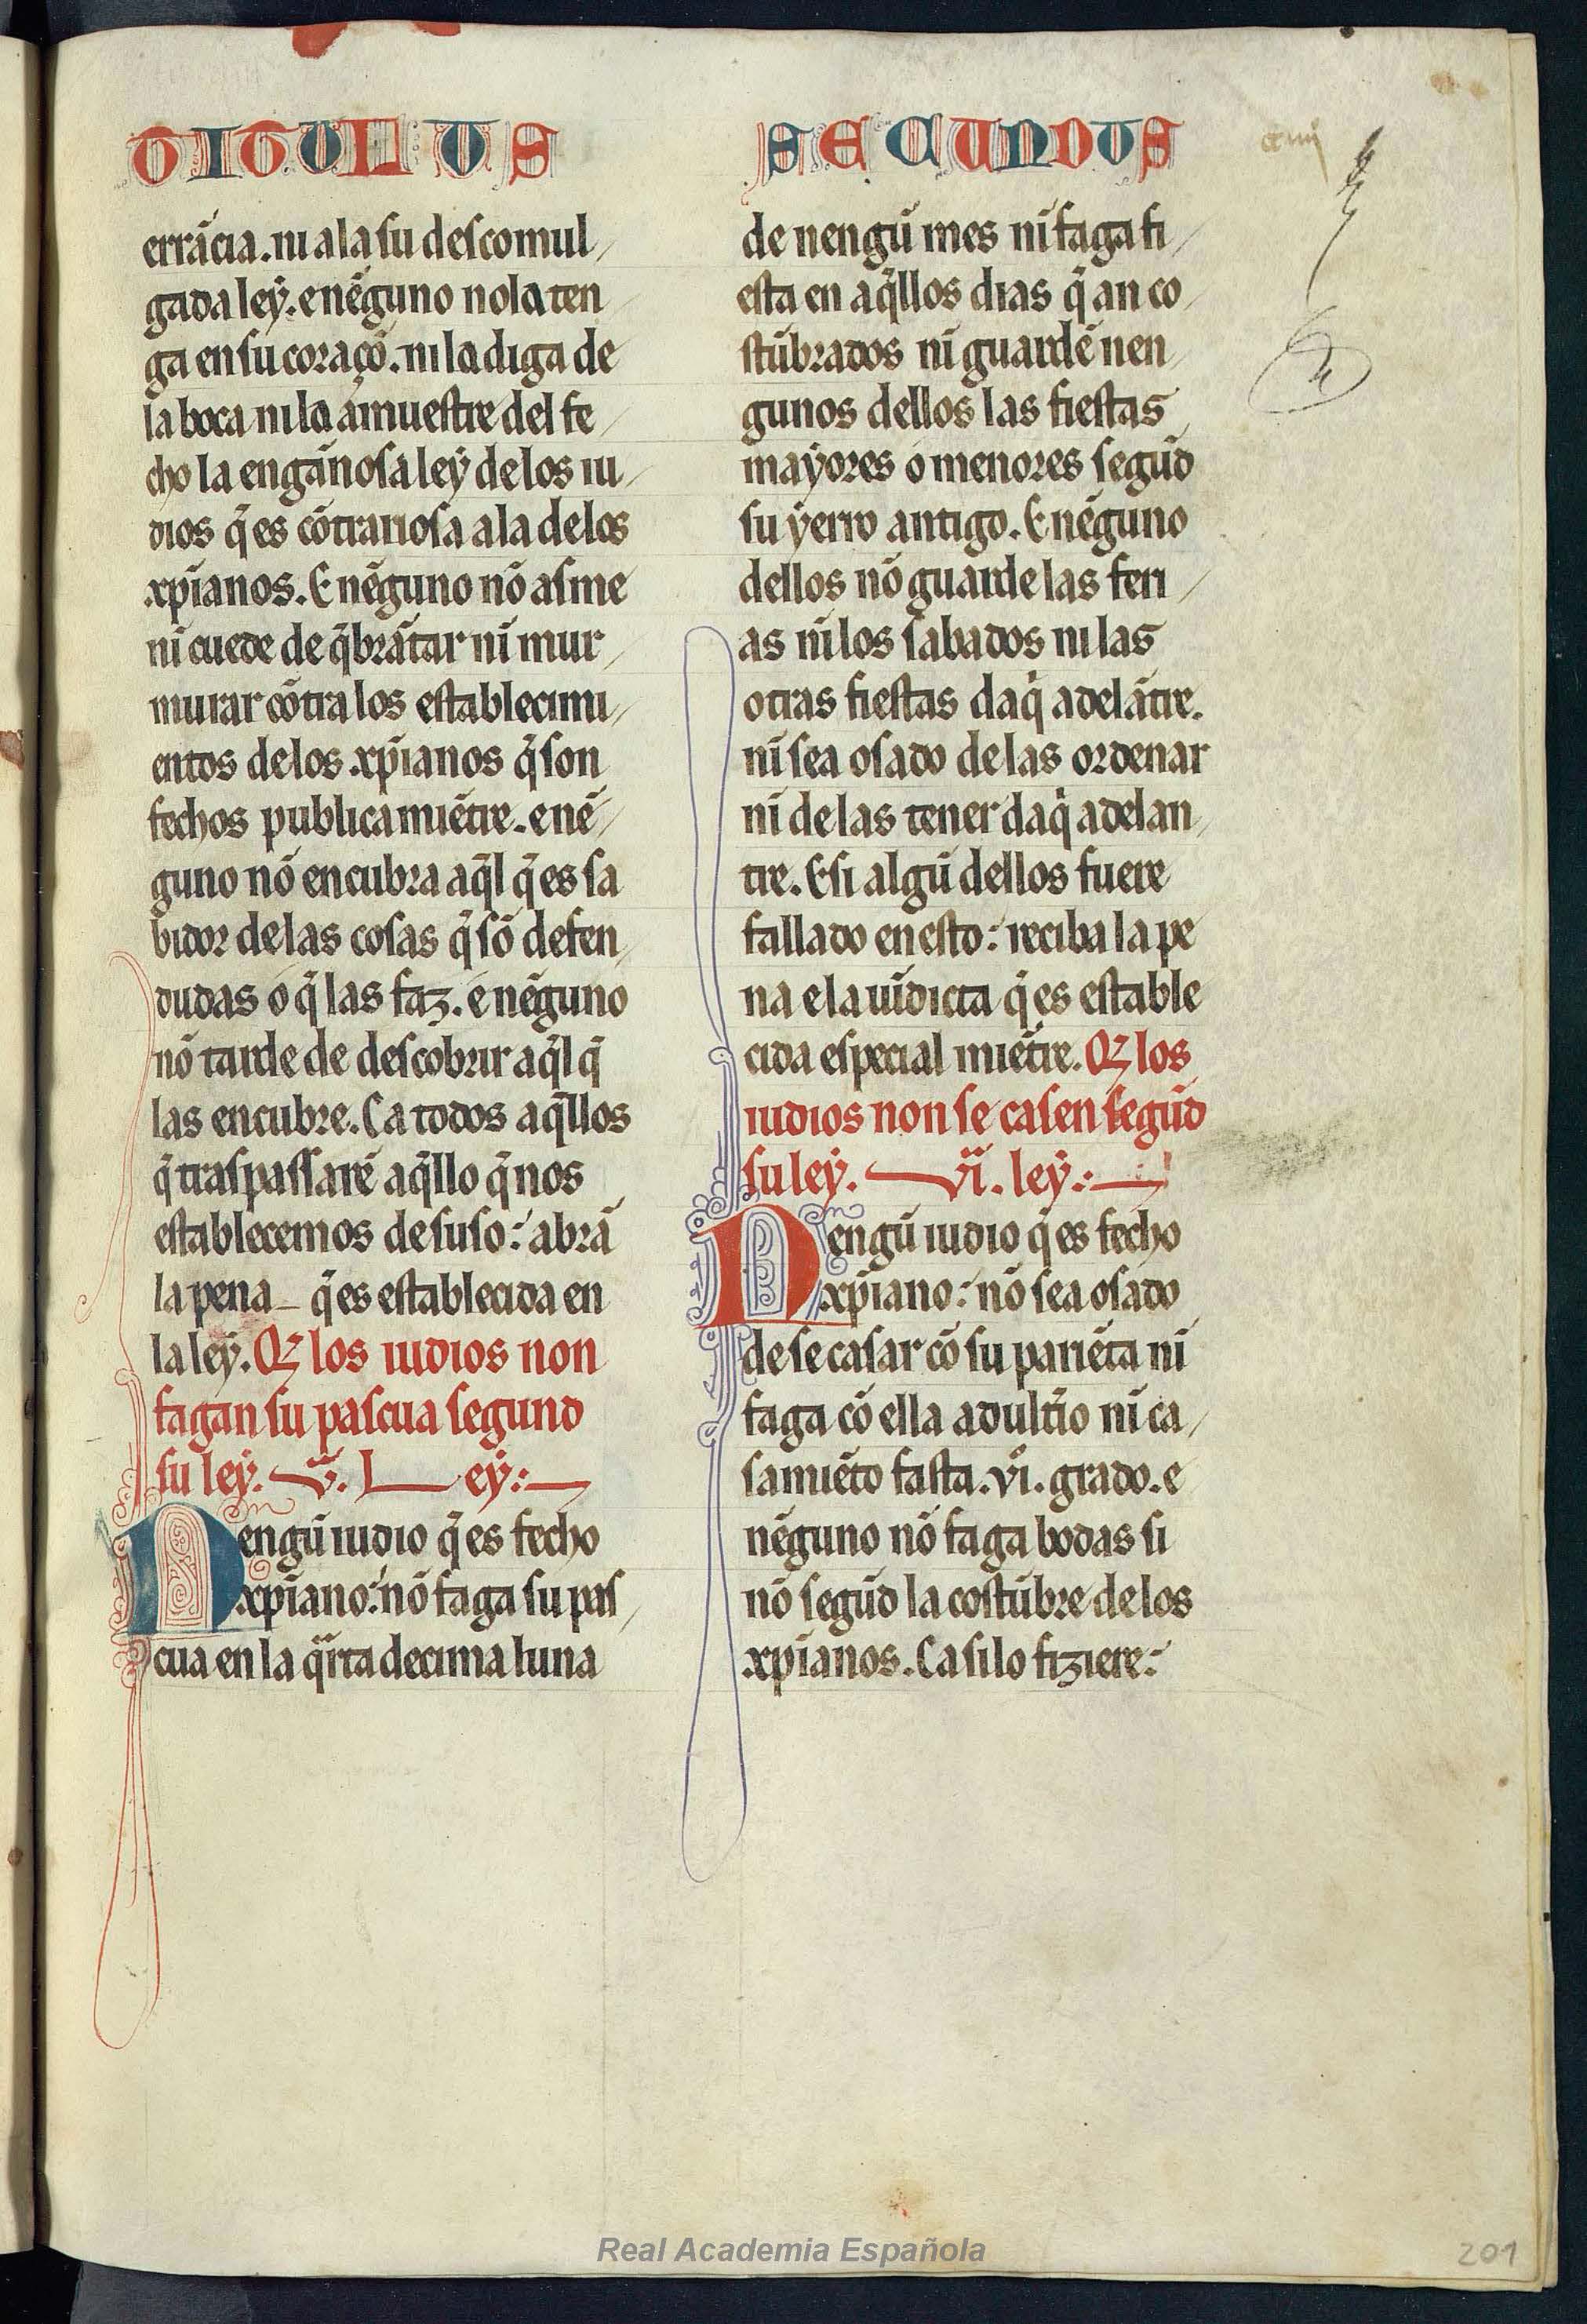 TITULUS SECUNDUS
errãcia. ni a la su descomul
gada leẏ. e nẽguno no la ten
ga en su coraçõ. ni la diga de
la boca ni la amuestre del fe
cho la engãnosa leẏ de los iu
dios q̃ es cõtrariosa a la de los
xp̃ianos. E nẽguno nõ asme
nĩ cuede de q̃brãtar nĩ mur
murar cõtra los establecimi
entos de los xp̃ianos q̃ son
fechos publica miẽtre. e nẽ
guno nõ encubra aq̃l q̃ es sa
bidor de las cosas q̃ sõ defen
dudas o q̃ las faz. e nẽguno
nõ tarde de descobrir aq̃l q̃
las encubre. Ca todos aq̃llos
q̃ traspassarẽ aq̃llo q̃ nos
establecemos de suso: abrã
la pena q̃ es establecida en
la leẏ. Qz los iudios non
fagan su pascua segund
su leẏ. v̊. Leẏ:
Nengũ iudio q̃ es fecho
xp̃iano: nõ faga su pas
cua en la q̃rta decima luna
de nengũ mes nĩ faga fi
esta en aq̃llos dias q̃ an co
stũbrados nĩ guardẽ nen
gunos dellos las fiestas
maẏores o menores segũd
su ẏerro antigo. E nẽguno
dellos nõ guarde las feri
as nĩ los sabados ni las
otras fiestas daq̃ adelãtre.
nĩ sea osado de las ordenar
nĩ de las tener daq̃ adelan
tre. E si algũ dellos fuere
fallado en esto: reciba la pe
na e la uĩdicta q̃ es estable
cida especial miẽtre. Qz los
iudios non se casen segũd
su leẏ. vi. leẏ:
Nengũ iudio q̃ es fecho
xp̃iano: nõ sea osado
de se casar cõ su pariẽta nĩ
faga cõ ella adult̃io nĩ ca
samiẽto fasta. vi̊. grado. e
nẽguno nõ faga bodas si
nõ segũd la costũbre de los
xp̃ianos. Ca si lo fiziere:
Real Academia Española
201